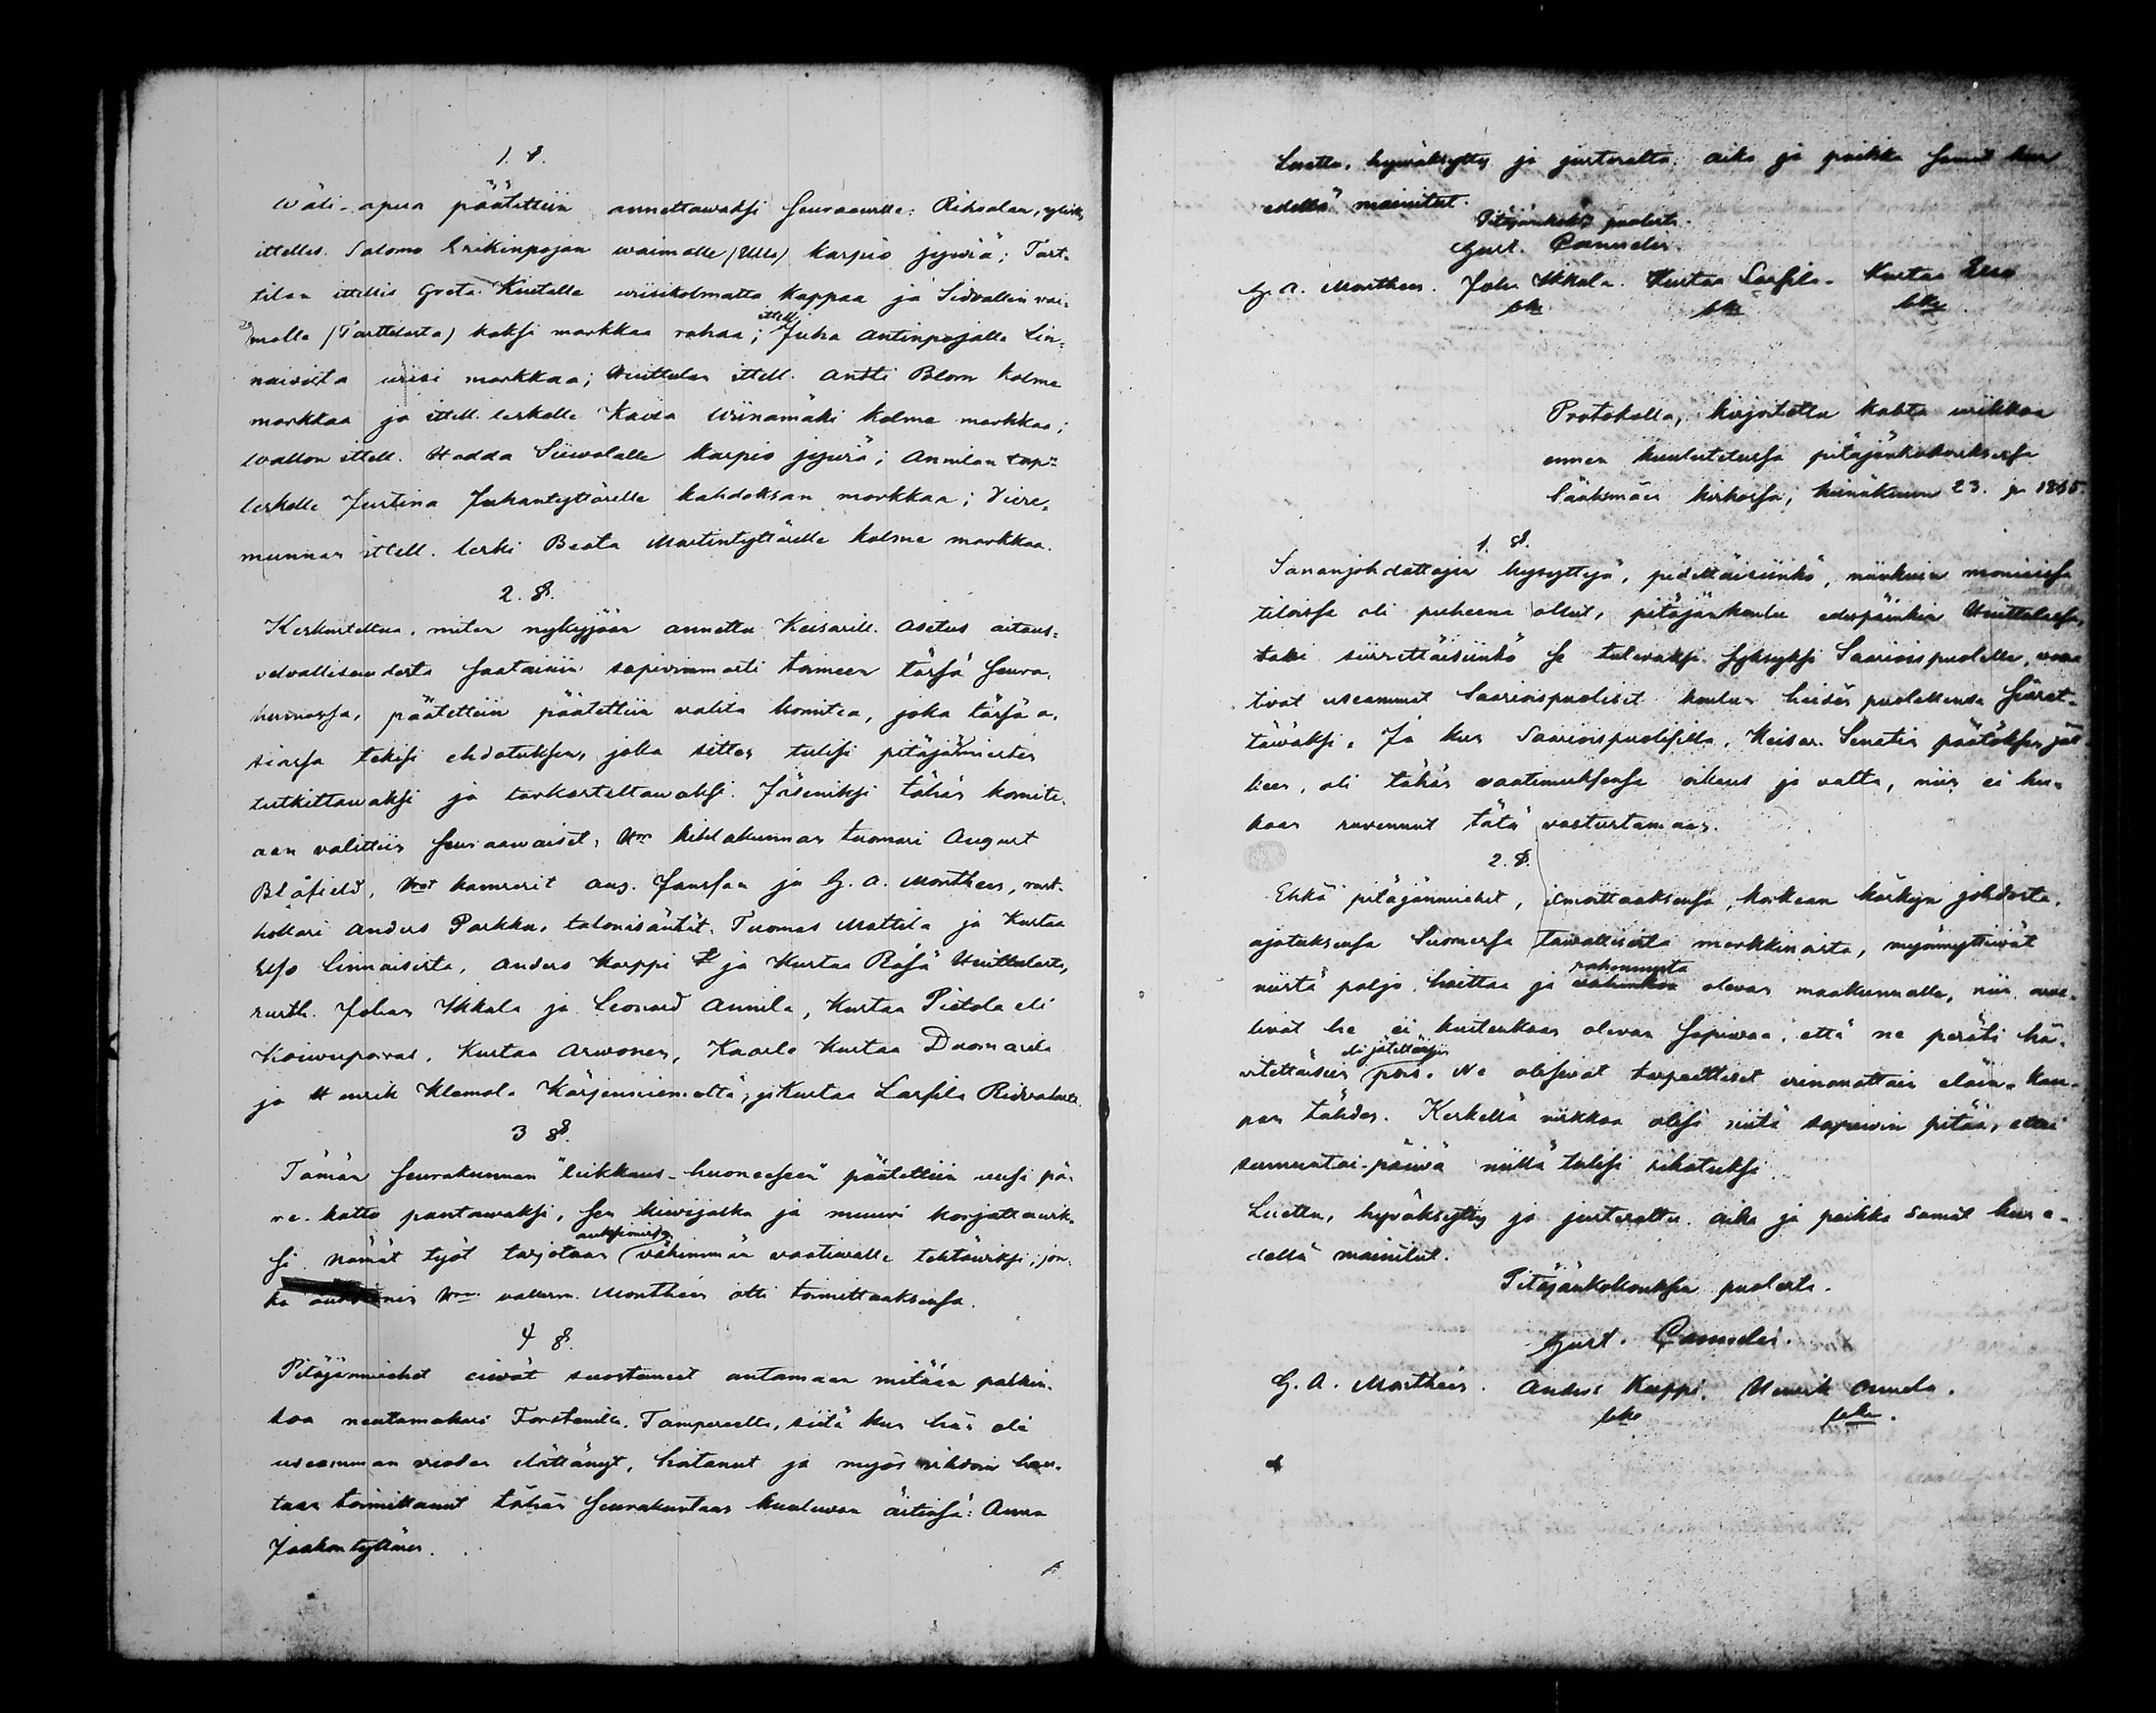 1. §.
Wäli-apua päätettiin annettawaksi seuraaville: Ridvalan,
ittellis. Salomo Erikinpojan waimolle (Ulla) karpio jywiä; Tart-
tilan ittellis Greta Kuutalle wiisikolmatta kappaa ja Sidvallin vai-
molle (Tarttilasta) kaksi markkaa rahaa; ittell. Juha Antinpojalle Lin-
naisista wiisi markkaa; Huittulan ittell. Antti Blom kolme
markkaa ja ittell. leskelle Kaisa Wiinamäki kolme markkaa;
Wallon ittell. Hedda Siiwolalle karpio jywiä; Annilan torp.
leskelle Justina Juhantyttärelle kahdeksan markkaa; Viere-
munnan ittell. leski Beata Martintyttärelle kolme markkaa.
2. §.
Keskusteltua, miten nykyjään annettu Keisarill. Asetus aitaus-
velvollisuudesta saataisiin sopivimmasti toimeen tässä seura-
kunnassa, päätettiin päätettiin valita komitea, joka tässä a-
siassa tekisi ehdotuksen, joka sitten tulisi pitäjänmiesten
tutkittawaksi ja tarkasteltawaksi. Jäseniksi tähän komite-
aan valittiin seuraawaiset: Hrra kihlakunnan tuomari August
Blåfield, Hrrat kamrerit Aug. Janssan ja G. A. Monthen, rust-
hollari Anders Parkku, talonisännät Tuomas Mattila ja Kustaa
Eljo Linnaisista, Anders Karppi ja Kustaa Räsä Huittulasta,
rusth. Johan Ikkala ja Leonard Annila, Kustaa Pietola eli
Koivuporras, Kustaa Arwonen, Kaarlo Kustaa Duomarila
ja Henrik Klemola Kärjenniemeltä, ja Kustaa Lassila Ridvalasta.
3 §.
Tämän seurakunnan "leikkaus-huoneseen" päätettiin uusi pä-
re-katto pantawaksi, sen kiwijalka ja muuri korjattawak-
si. Nämät työt tarjotaan auksionissa vähimmän vaatiwalle tehtäwiksi, jon-
ka Hrra vallesm. Monthén otti toimittaaksensa.
4 §.
Pitäjänmiehet eiwät suostuneet antamaan mitään palkin-
toa nentamakari Forsténille Tampereella, siitä kun hän oli
useamman vuoden elättänyt, hoitanut ja myös wihdoin hau-
taan toimittanut tähän seurakuntaan kuuluwan äitinsä: Anna
Jaakontyttären.
Luettu, hywäksytty ja justerattu, aika ja paikka samat kun
edellä mainitut.
Pitäjänkok: puolesta.
Gust. Cannelin.
G. A. Monthen. Joha Ikkala. Kustaa Lassila. Kustaa Eljo
Protokolla, kirjoitettu kahta wiikkoa
ennen kuulutetussa pitäjänkokouksessa
Sääksmäen kirkossa, heinäkuun 23. p. 1865.
1. §.
Sananjohdattajan kysyttyä, pidettäisiinkö, niinkuin monissa
tiloissa oli puheena ollut, pitäjänkoulu edespäinkin Huittulassa,
tahi siirrettäisiinkö se tulevaksi syksyksi Saarioispuolelle, vaa-
tivat useammat Saarioispuoliset koulun heidän puolellensa siirret-
täwäksi. Ja kun Saarioispuolisilla, Keisar. Senatin päätöksen jäl-
keen, oli tähän vaatimukseensa oikeus ja valta, niin ei ku-
kaan ruvennut tätä vastustamaan.
2. §.
Ehkä pitäjänmiehet, ilmoittaaksensa, korkean käskyn johdosta,
ajatuksensa Suomessa tawallisista markkinoista, myönnyttiwät
niistä paljo haittaa ja pahennusta olevan maakunnalle, niin arve-
livat he ei kuitenkaan olevan sopiwaa, että ne peräti hä-
vitettäisiin eli jätettäisiin pois. Ne olisivat tarpeelliset erinomattain eläin-kau-
pan tähden. Keskellä viikkoa olisi niitä sopiwin pitää, ettei
sunnuntai-päiwä niillä tulisi rikotuksi.
Luettu, hyväksytty ja justerattu, aika ja paikka samat kun e-
dellä mainitut.
Pitäjänkokouksen puolesta.
Gust. Cannelin.
G. A. Monthén. Anders Karppi. Henrik Annila.